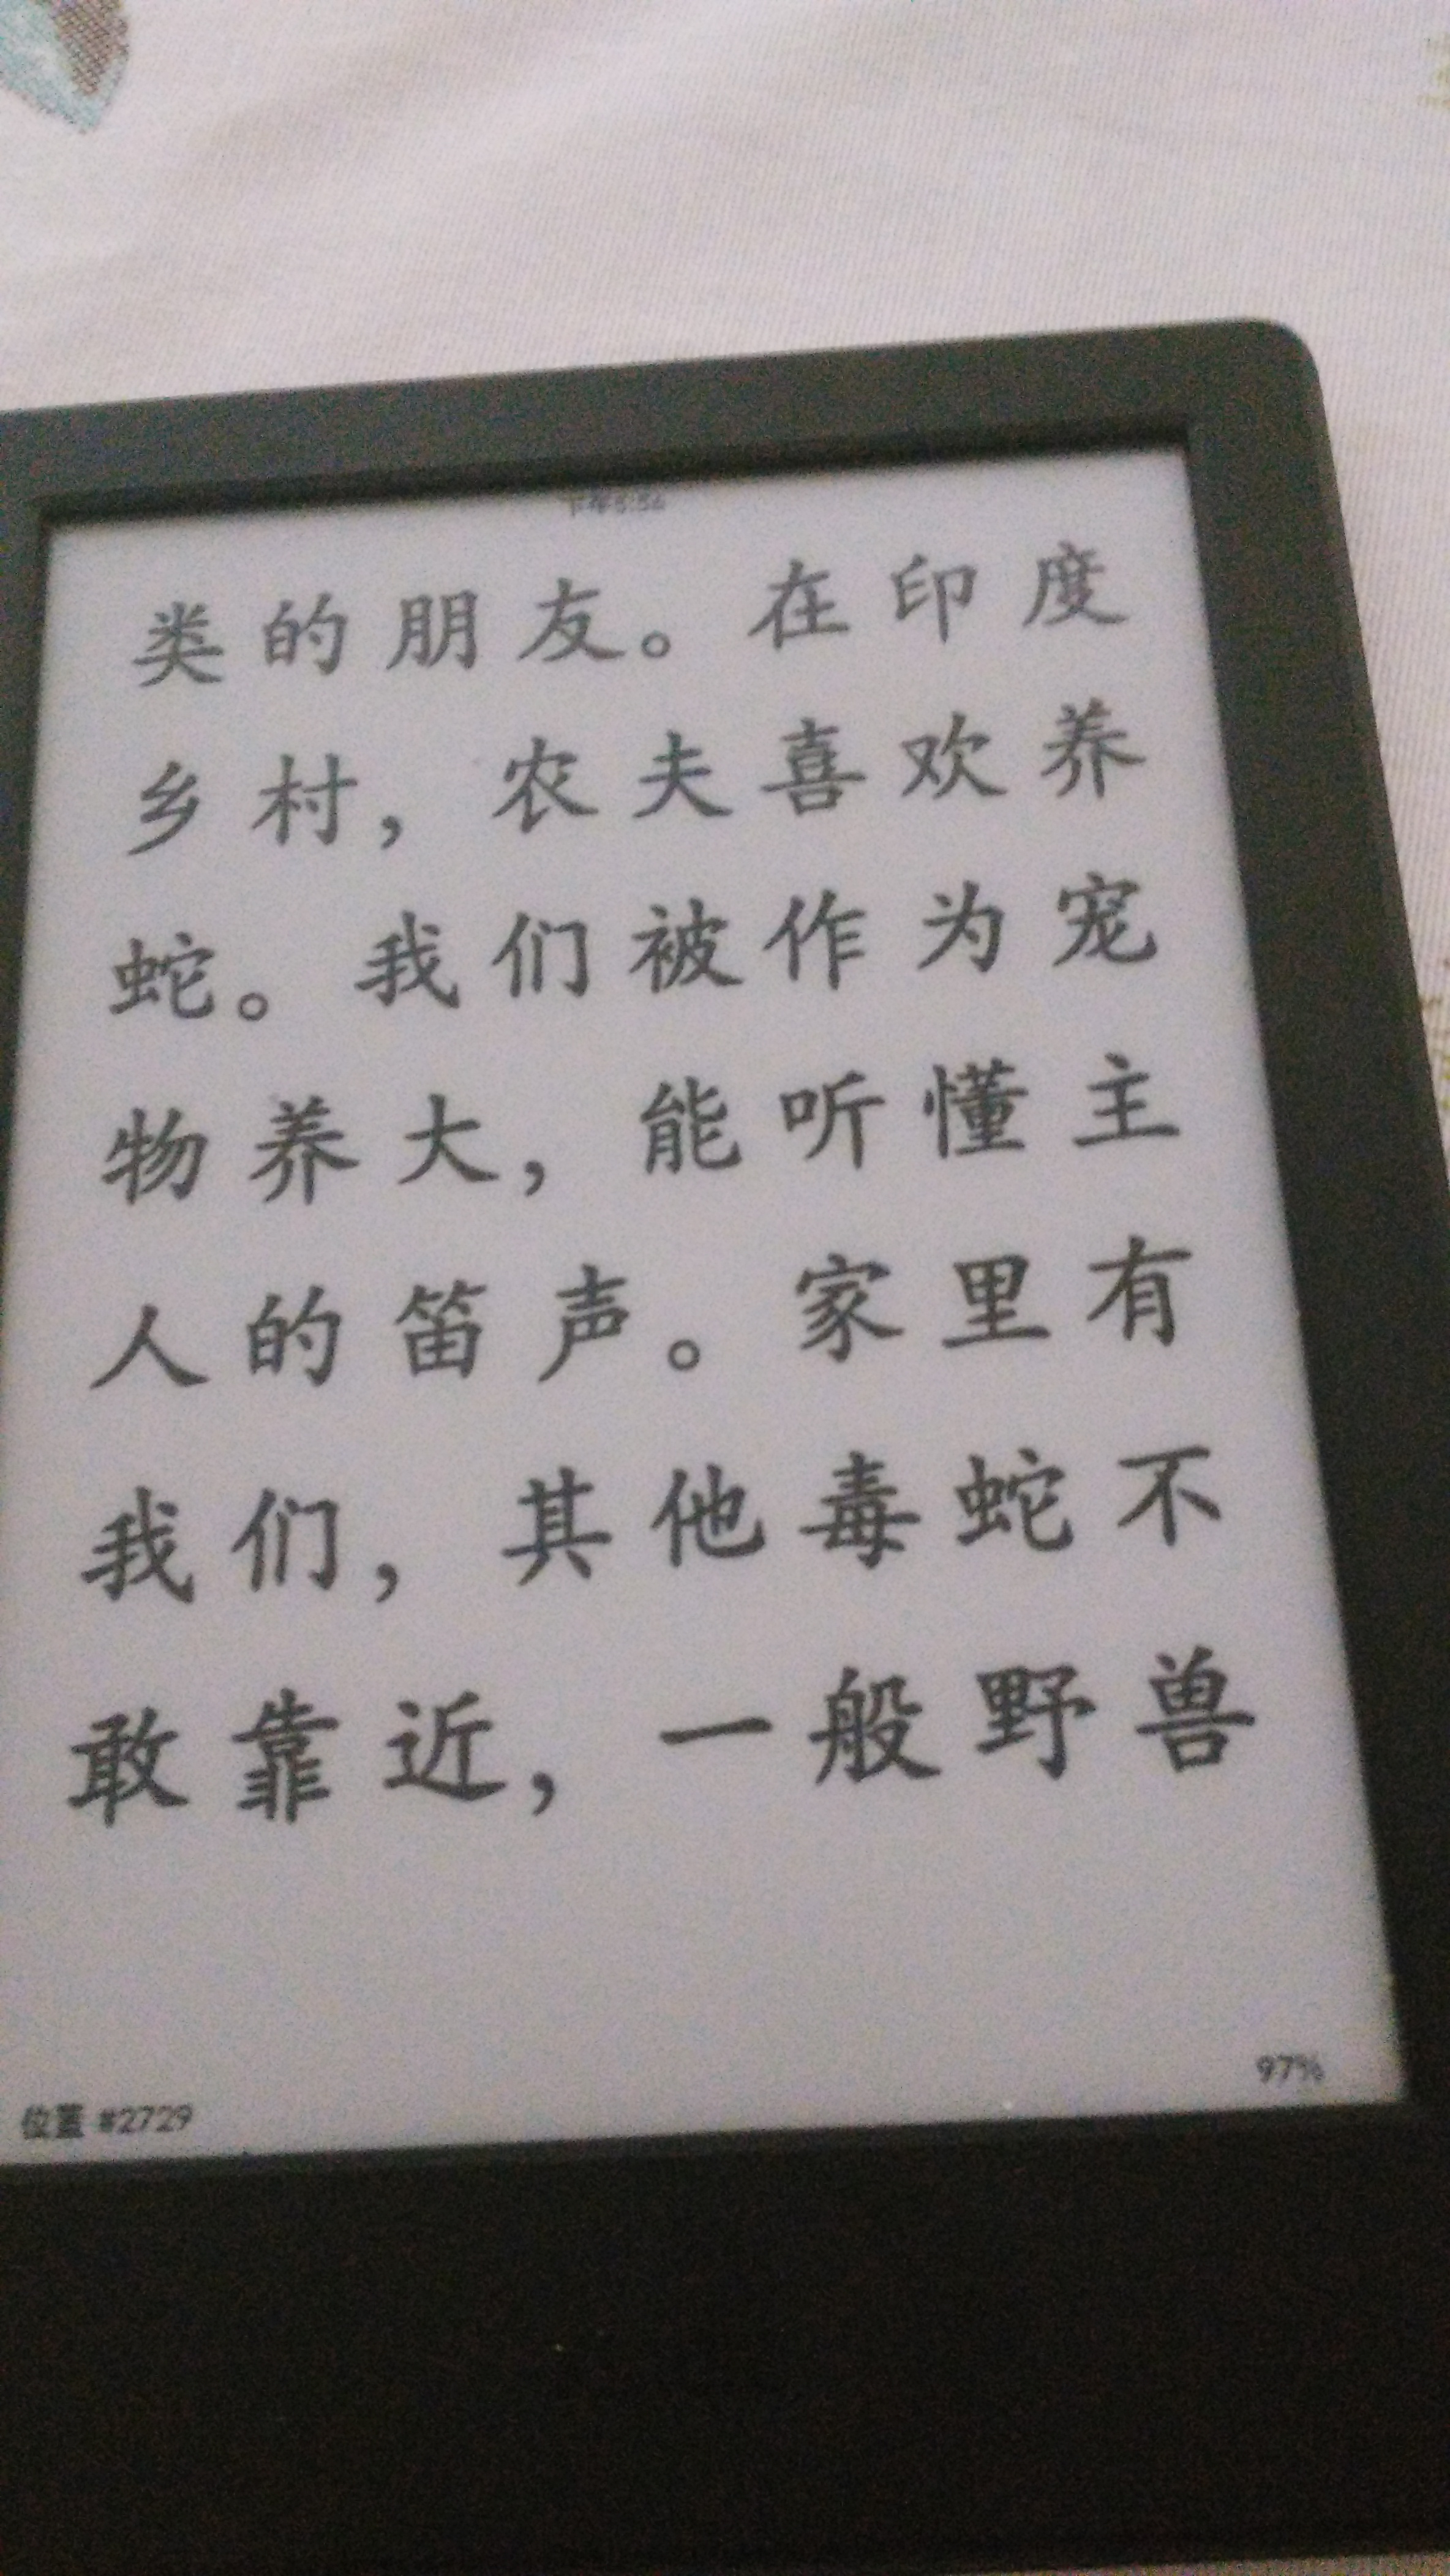 类的朋友。在印度
乡村，农夫喜欢养
蛇。我们被作为宠
物养大，能听懂主
人的笛声。家里有
我们，其他毒蛇不
敢靠近，一般野兽
位置 #2729
97%